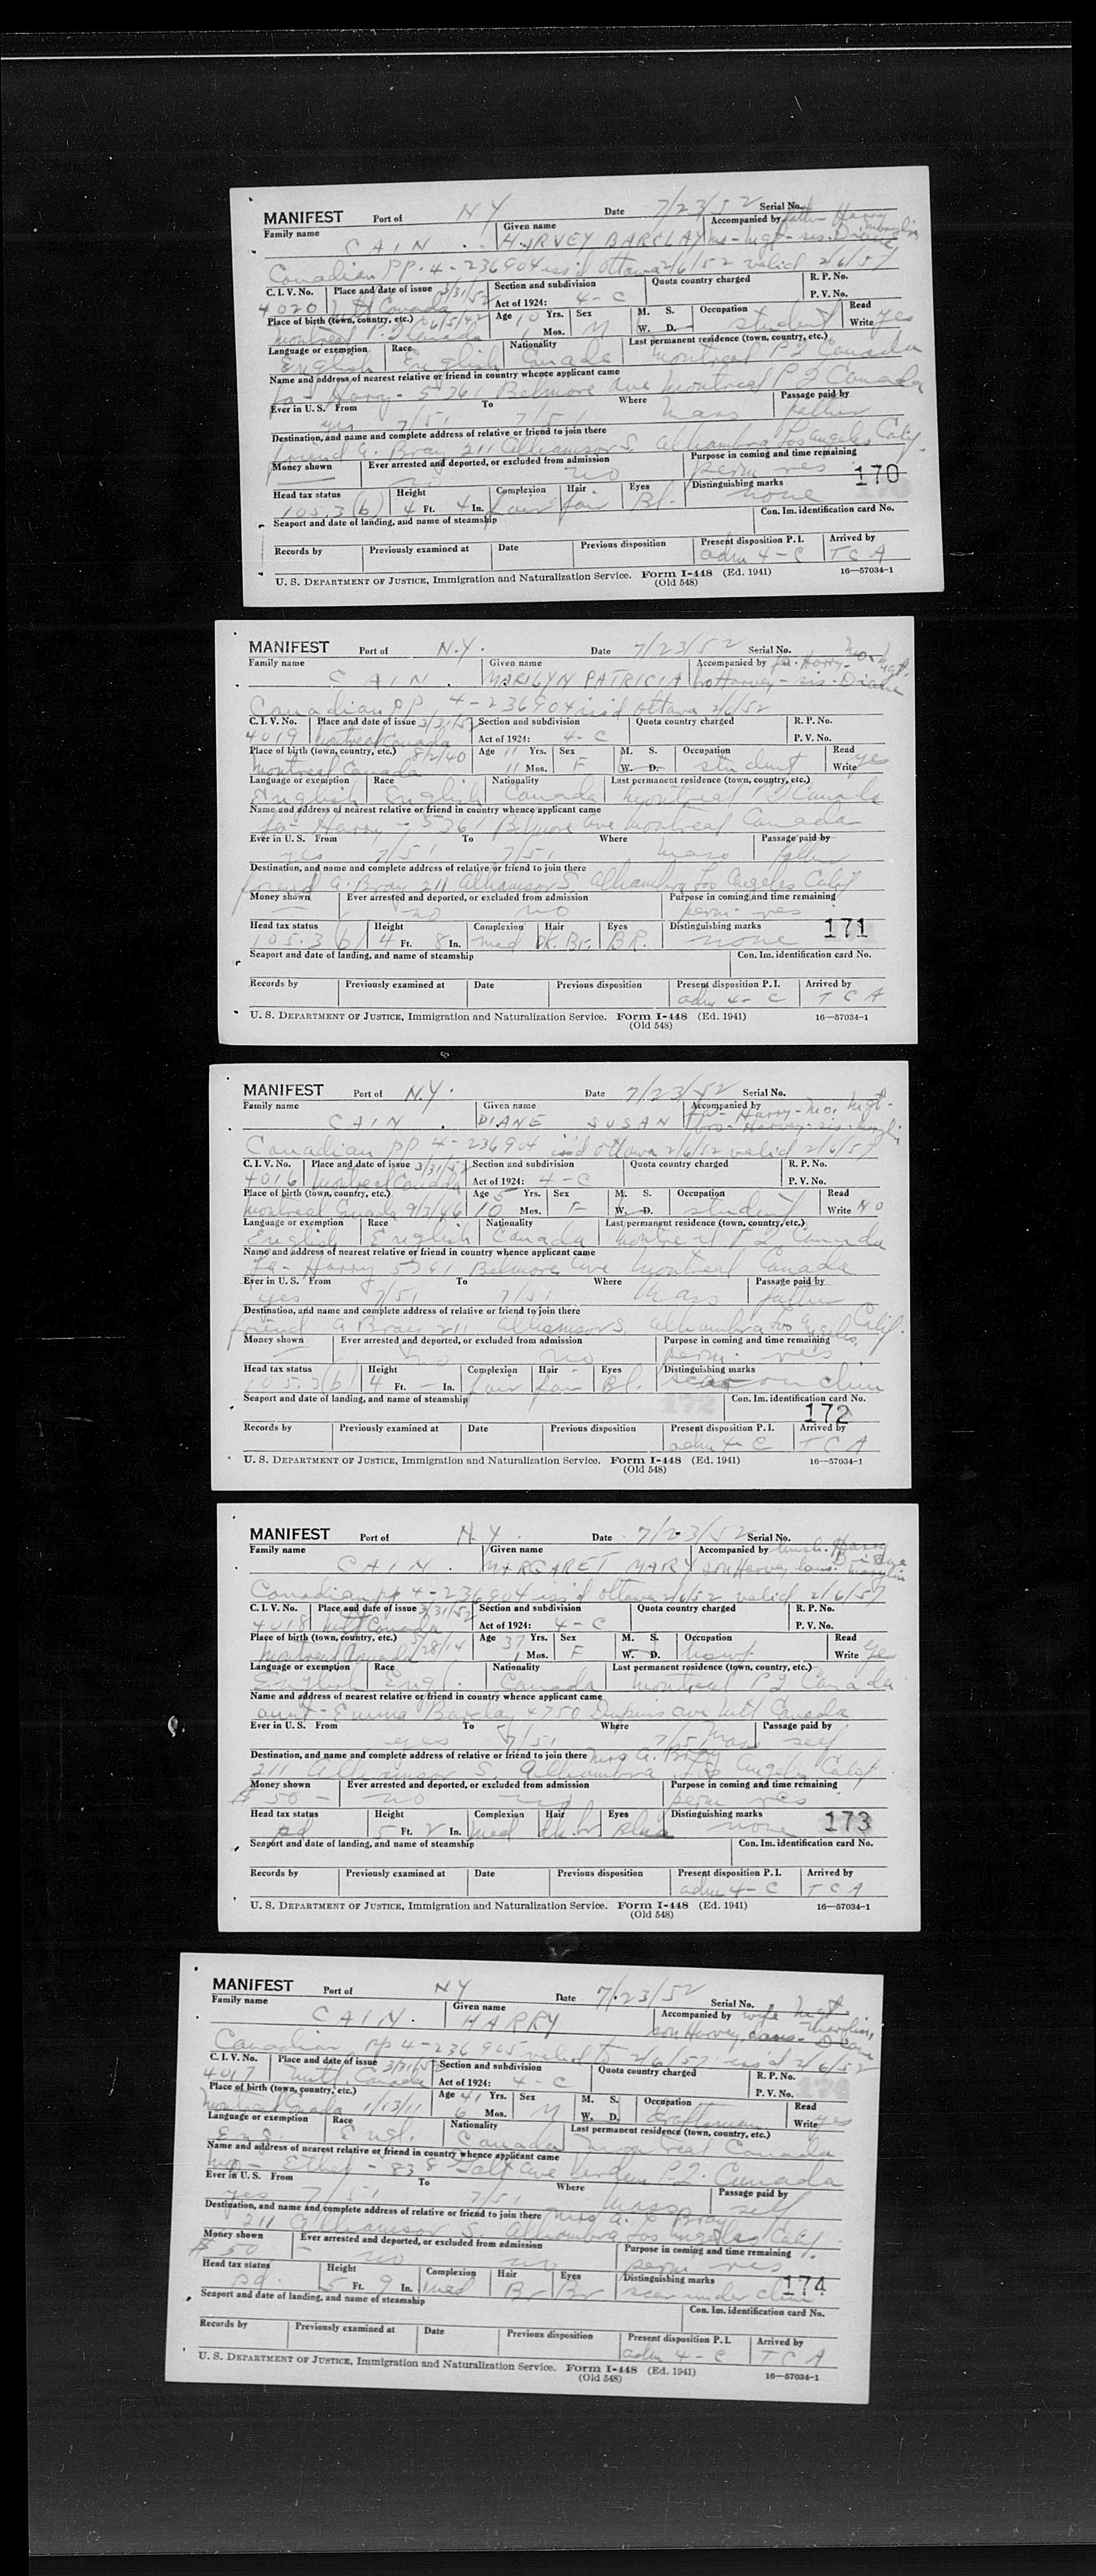 MANIFEST Port of NY Date 7/23/52 Serial No.
Family name Given name Accompanied by father Harry
CAIN. HARVEY BARCLAY mo-mgt-sis. Diane
Canadian PP. 4-236904 iss'd Ottawa 2/6/52 valid 2/6/57
C. I. V. No. Place and date of issue 3/31/52 Section and subdivision Quota country charged R. P. No.
4020 Canada Act of 1924: 4-C P. V. No.
Place of birth (town, country, etc.) Age 10 Yrs. Sex M. S. Occupation Read
Montreal Canada 1 Mos. M W. D. student Write yes
Language or exemption Race Nationality Last permanent residence (town, country, etc.)
English English Canada Montreal P2 Canada
Name and address of nearest relative or friend in country whence applicant came
fa- Harry- 5361 Belmore Ave Montreal P2 Canada
Ever in U. S. From To Where Passage paid by
yes 7/51 7/51 mass father
Destination, and name and complete address of relative or friend to join there
friend A. Bray 211 Alhamsor S. Alhambra Los Angeles Calif.
Money shown Ever arrested and deported, or excluded from admission Purpose in coming and time remaining
no no perm res 170
Head tax status Height Complexion Hair Eyes Distinguishing marks
105.3(b) 4 Ft. 4 In. fair fair Bl. none
Seaport and date of landing, and name of steamship Con. Im. identification card No.
Records by Previously examined at Date Previous disposition Present disposition P. I. Arrived by
adm 4-C TCA
U. S. DEPARTMENT OF JUSTICE, Immigration and Naturalization Service. Form I-448 (Ed. 1941) 16—57034-1
(Old 548)
MANIFEST Port of N.Y. Date 7/23/52 Serial No.
Family name Given name Accompanied by fa. Harry- mo. mgt.
CAIN. MARILYN PATRICIA bro Harvey- sis. Diane
Canadian PP. 4-236904 iss'd Ottawa 2/6/52
C. I. V. No. Place and date of issue 3/31/52 Section and subdivision Quota country charged R. P. No.
4019 Montreal Canada Act of 1924: 4-C P. V. No.
Place of birth (town, country, etc.) 8/2/40 Age 11 Yrs. Sex M. S. Occupation Read
Montreal Canada 11 Mos. F W. D. student Write yes
Language or exemption Race Nationality Last permanent residence (town, country, etc.)
English English Canada Montreal P2 Canada
Name and address of nearest relative or friend in country whence applicant came
fa- Harry- 5361 Belmore Ave Montreal Canada
Ever in U. S. From To Where Passage paid by
yes 7/51 7/51 mass father
Destination, and name and complete address of relative or friend to join there
friend A. Bray 211 Alhamsor S. Alhambra Los Angeles Calif
Money shown Ever arrested and deported, or excluded from admission Purpose in coming and time remaining
no no perm- res 171
Head tax status Height Complexion Hair Eyes Distinguishing marks
105.3(b) 4 Ft. 8 In. med DK. Br. BR. none
Seaport and date of landing, and name of steamship Con. Im. identification card No.
Records by Previously examined at Date Previous disposition Present disposition P. I. Arrived by
adm 4-C TCA
U. S. DEPARTMENT OF JUSTICE, Immigration and Naturalization Service. Form I-448 (Ed. 1941) 16—57034-1
(Old 548)
MANIFEST Port of N.Y. Date 7/23/52 Serial No.
Family name Given name Accompanied by fa- Harry- mo. mgt-
CAIN. DIANE SUSAN bro- Harvey- sis-
Canadian PP 4-236904 iss'd Ottawa 2/6/52 valid 2/6/57
C. I. V. No. Place and date of issue 3/31/52 Section and subdivision Quota country charged R. P. No.
4016 Montreal Canada Act of 1924: 4-C P. V. No.
Place of birth (town, country, etc.) Age 5 Yrs. Sex M. S. Occupation Read
Montreal Canada 9/3/46 10 Mos. F W. D. student Write NO
Language or exemption Race Nationality Last permanent residence (town, country, etc.)
English English Canada Montreal P2 Canada
Name and address of nearest relative or friend in country whence applicant came
Fa- Harry 5361 Belmore Ave Montreal Canada
Ever in U. S. From To Where Passage paid by
yes 7/51 7/51 Mass father
Destination, and name and complete address of relative or friend to join there
friend A Bray 211 Alhamsor S. Alhambra Los Angeles, Calif.
Money shown Ever arrested and deported, or excluded from admission Purpose in coming and time remaining
no no perm. res
Head tax status Height Complexion Hair Eyes Distinguishing marks
105.3(b) 4 Ft. In. fair fair Bl. scar on chin
Seaport and date of landing, and name of steamship 172 Con. Im. identification card No.
172
Records by Previously examined at Date Previous disposition Present disposition P. I. Arrived by
adm 4-C TCA
U. S. DEPARTMENT OF JUSTICE, Immigration and Naturalization Service. Form I-448 (Ed. 1941) 16—57034-1
(Old 548)
MANIFEST Port of N.Y. Date 7/23/52 Serial No.
Family name Given name Accompanied by Harry
CAIN. MARGARET MARY son Harvey Diane
Canadian pp 4-236904 iss'd Ottawa 2/6/52 valid 2/6/57
C. I. V. No. Place and date of issue 3/31/52 Section and subdivision Quota country charged R. P. No.
4018 Canada Act of 1924: 4-C P. V. No.
Place of birth (town, country, etc.) Age 37 Yrs. Sex M. S. Occupation Read
Montreal Canada /28/14 1 Mos. F W. D. Write Yes
Language or exemption Race Nationality Last permanent residence (town, country, etc.)
English Engl. Canada Montreal P2 Canada
Name and address of nearest relative or friend in country whence applicant came
aunt- Emma Barclay 4750 ave Canada
Ever in U. S. From To Where Passage paid by
yes 7/51 7/51 Mass self
Destination, and name and complete address of relative or friend to join there Mrs A. Bray
211 Alhamsor S. Alhambra Los Angeles Calif
Money shown Ever arrested and deported, or excluded from admission Purpose in coming and time remaining
$50- no no perm res
Head tax status Height Complexion Hair Eyes Distinguishing marks 173
pd 5 Ft. 2 In. med dk. br blue none
Seaport and date of landing, and name of steamship Con. Im. identification card No.
Records by Previously examined at Date Previous disposition Present disposition P. I. Arrived by
adm 4-C TCA
U. S. DEPARTMENT OF JUSTICE, Immigration and Naturalization Service. Form I-448 (Ed. 1941) 16—57034-1
(Old 548)
MANIFEST Port of NY Date 7/23/52 Serial No.
Family name Given name Accompanied by wife Mgt.
CAIN. HARRY son Harvey, Diane
Canadian pp 4-236905 valid to 2/6/57 iss'd 2/6/52
C. I. V. No. Place and date of issue 3/31/52 Section and subdivision Quota country charged R. P. No.
4017 Canada Act of 1924: 4-C P. V. No.
Place of birth (town, country, etc.) Age 41 Yrs. Sex M. S. Occupation Read
Montreal Canada 1/13/11 6 Mos. M W. D. draftsman Write yes
Language or exemption Race Nationality Last permanent residence (town, country, etc.)
Eng. Engl. Canada Montreal Canada
Name and address of nearest relative or friend in country whence applicant came
mo- Ethel- 838 Galt Ave Verdun P2. Canada
Ever in U. S. From To Where Passage paid by
yes 7/51 7/51 mass self
Destination, and name and complete address of relative or friend to join there Mrs A. Bray
211 Alhamsor S. Alhambra Los Angeles Calif.
Money shown Ever arrested and deported, or excluded from admission Purpose in coming and time remaining
$50 - no no perm res
Head tax status Height Complexion Hair Eyes Distinguishing marks 174
pd. 5 Ft. 9 In. med Br Br scar under chin
Seaport and date of landing, and name of steamship Con. Im. identification card No.
Records by Previously examined at Date Previous disposition Present disposition P. I. Arrived by
adm 4-C TCA
U. S. DEPARTMENT OF JUSTICE, Immigration and Naturalization Service. Form I-448 (Ed. 1941) 16—57034-1
(Old 548)